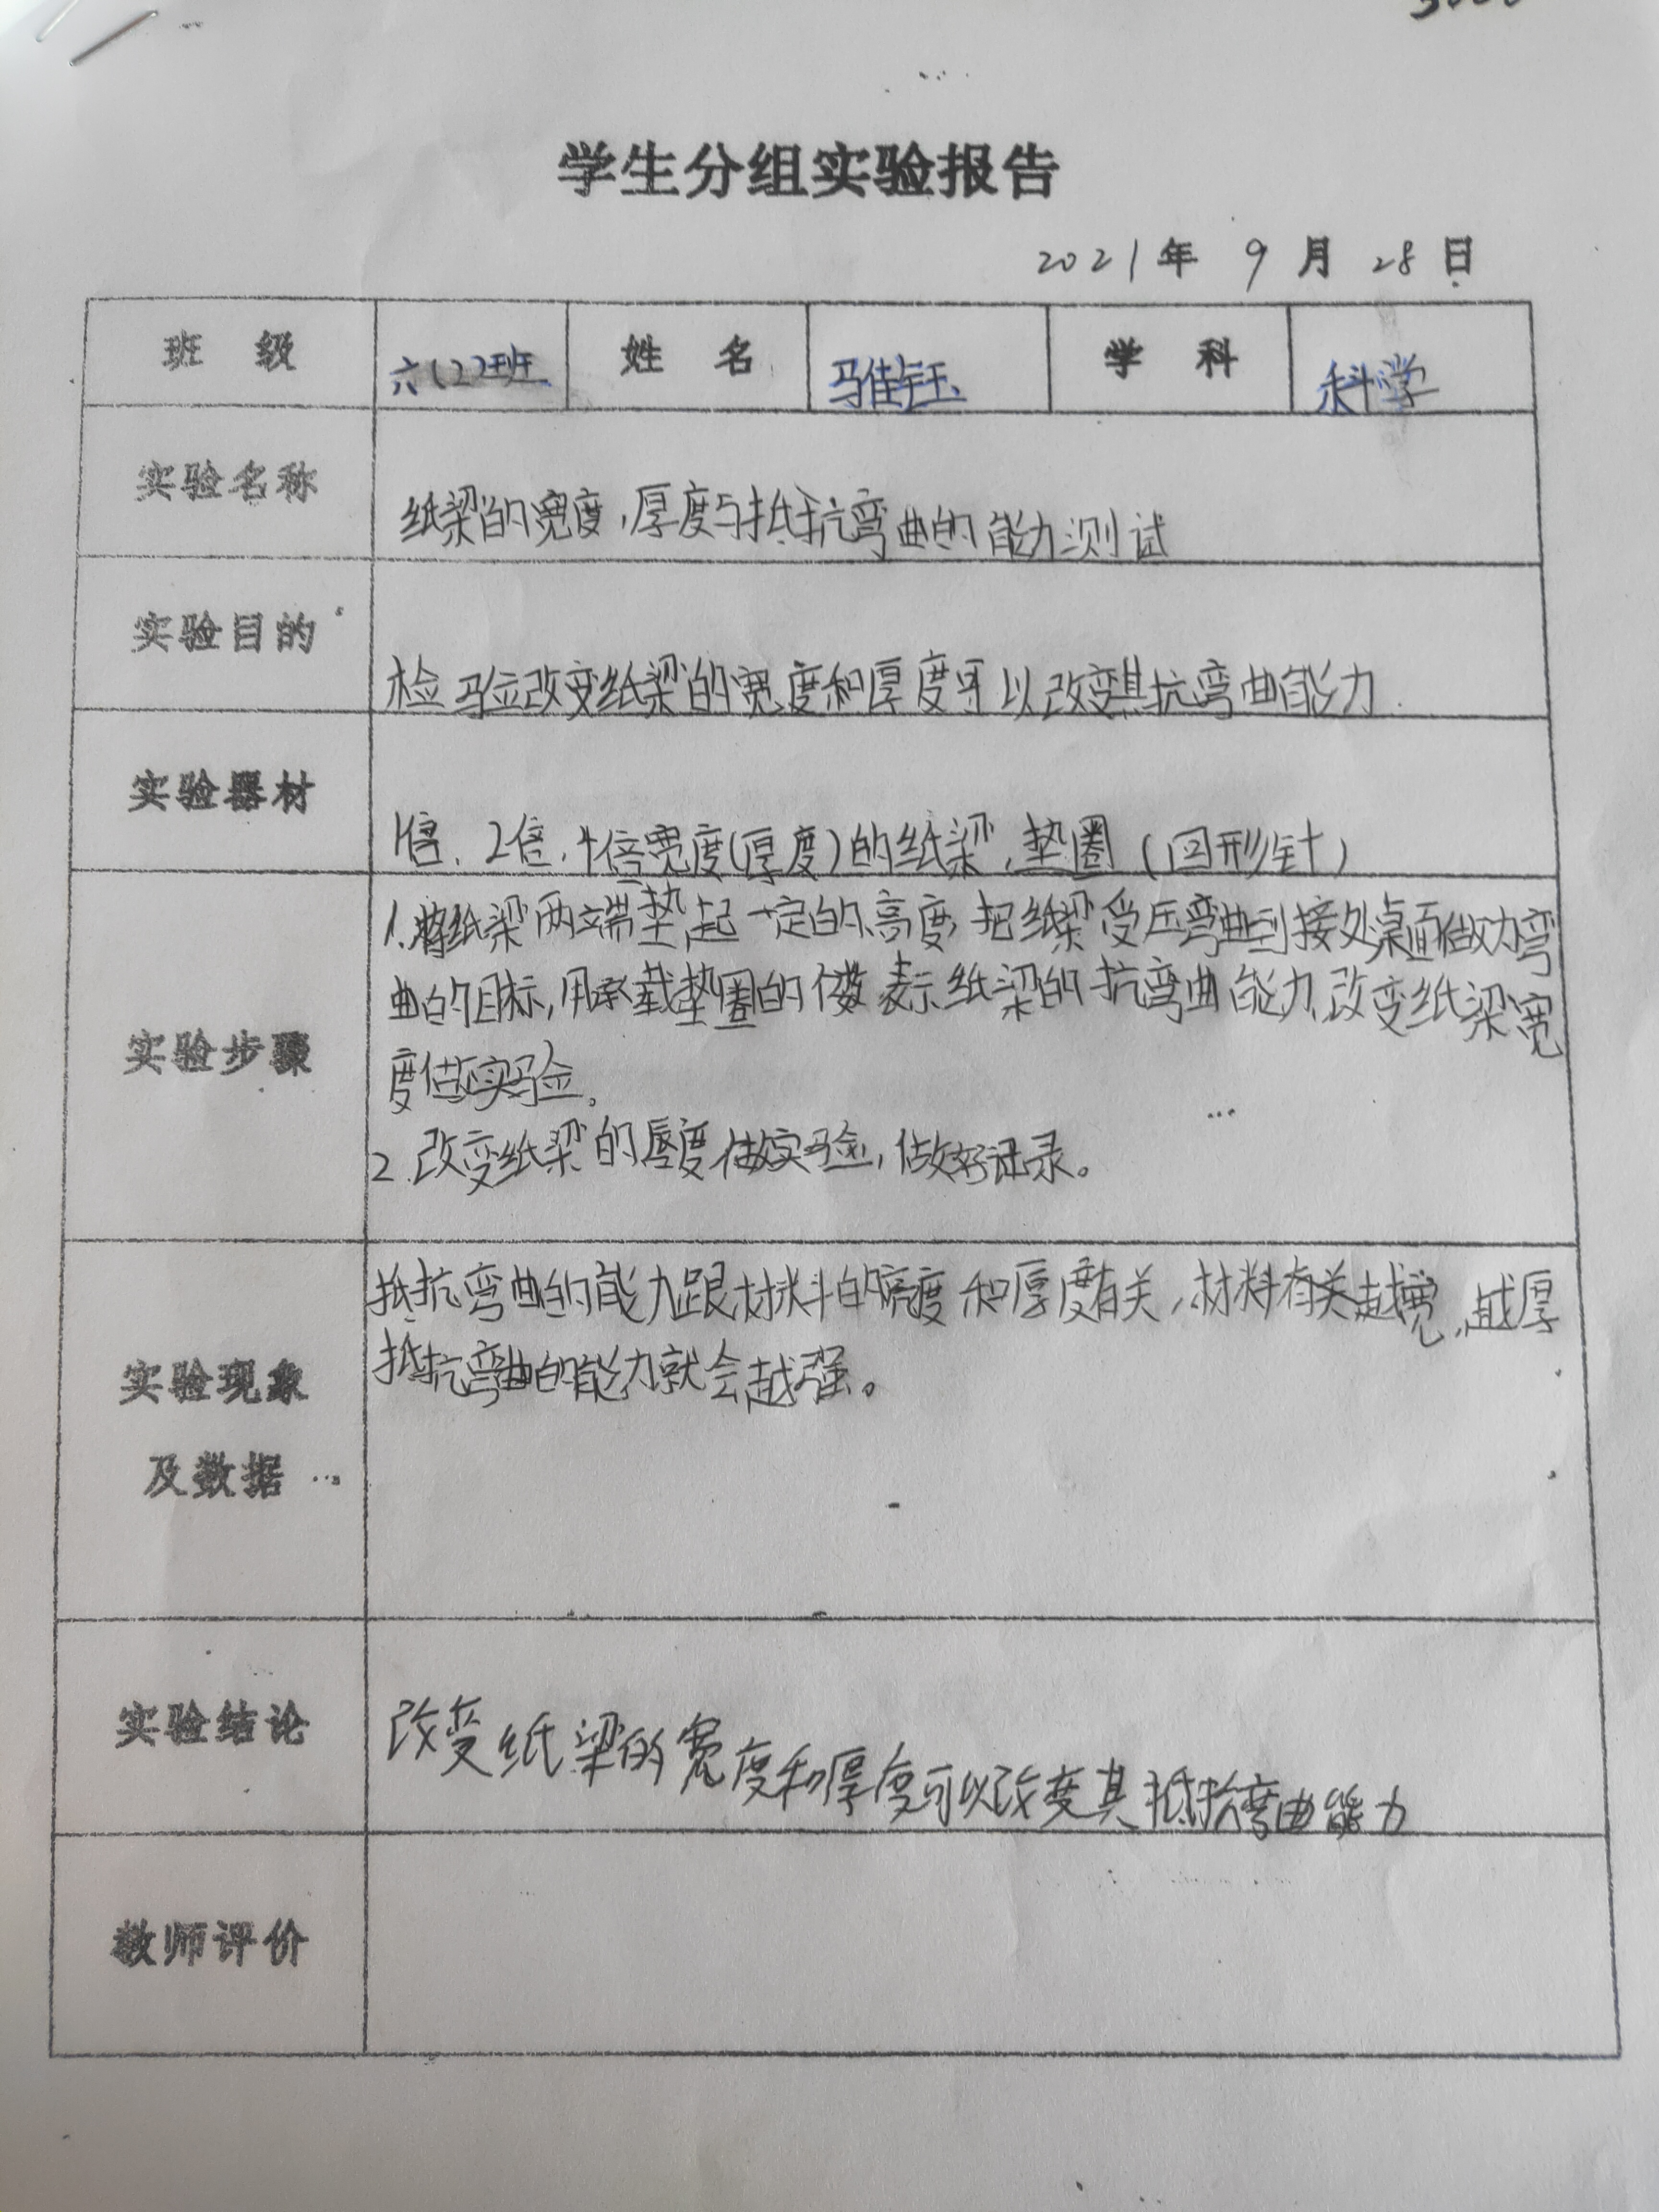 学生分组实验报告
2021年 9月 28日
班 级 六(2)班 姓 名 马佳钰 学 科 科学
实验名称 纸梁的宽度,厚度与抵抗弯曲的能力测试
实验目的 检验改变纸梁的宽度和厚度可以改变其抗弯曲能力.
实验器材 1倍、2倍,4倍宽度(厚度)的纸梁,垫圈(回形针)
实验步骤
1.将纸梁两端垫起一定的高度,把纸梁受压弯曲到接处桌面做为弯
曲的目标,用承载垫圈的个数表示纸梁的抗弯曲能力,改变纸梁宽
度做实验。
2.改变纸梁的厚度做实验,做好记录。
实验现象
及数据
抵抗弯曲的能力跟材料的宽度和厚度有关,材料有关越宽,越厚
抵抗弯曲的能力就会越强。
实验结论 改变纸梁的宽度和厚度可以改变其抵抗弯曲能力
教师评价